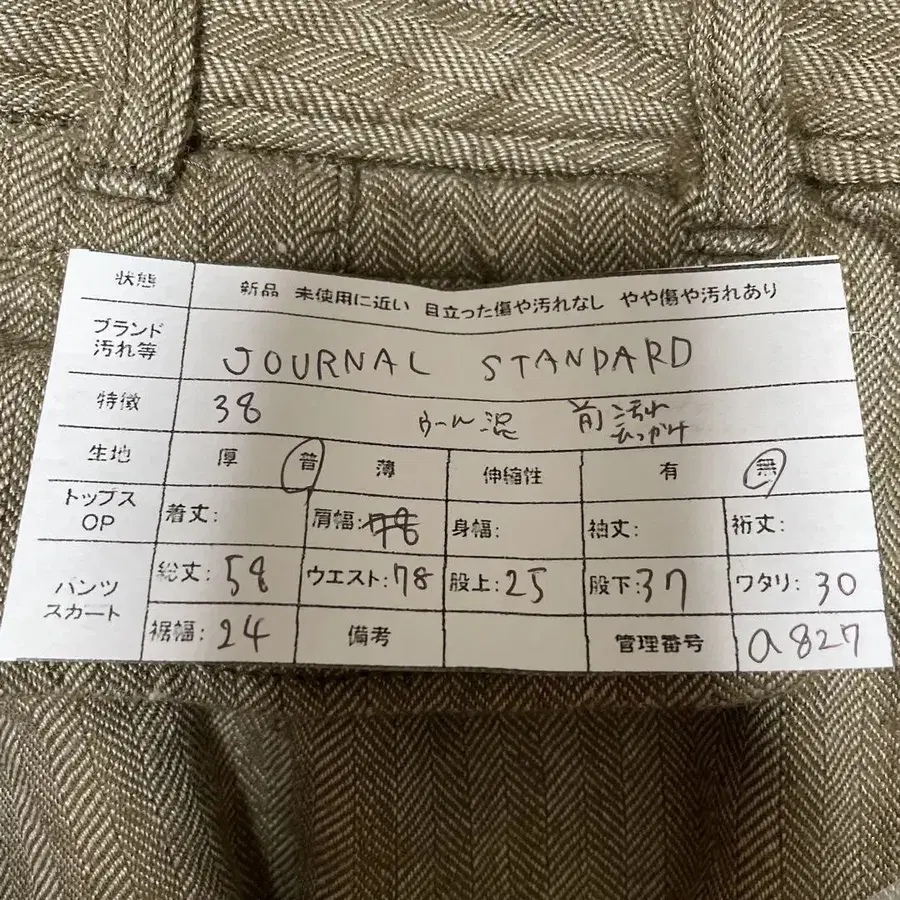 状態 新品 未使用に近い 目立った傷や汚れなし やや傷や汚れあり
ブランド 汚れ等 JOURNAL STANDARD
特徴 38 ウール混 前 汚れ ひっかけ
生地 厚 普 薄 伸縮性 有 無
トップス OP 着丈: 肩幅: 78 身幅: 袖丈: 裄丈:
パンツ スカート 総丈: 58 ウエスト: 78 股上: 25 股下: 37 ワタリ: 30
裾幅: 24 備考 管理番号 a827